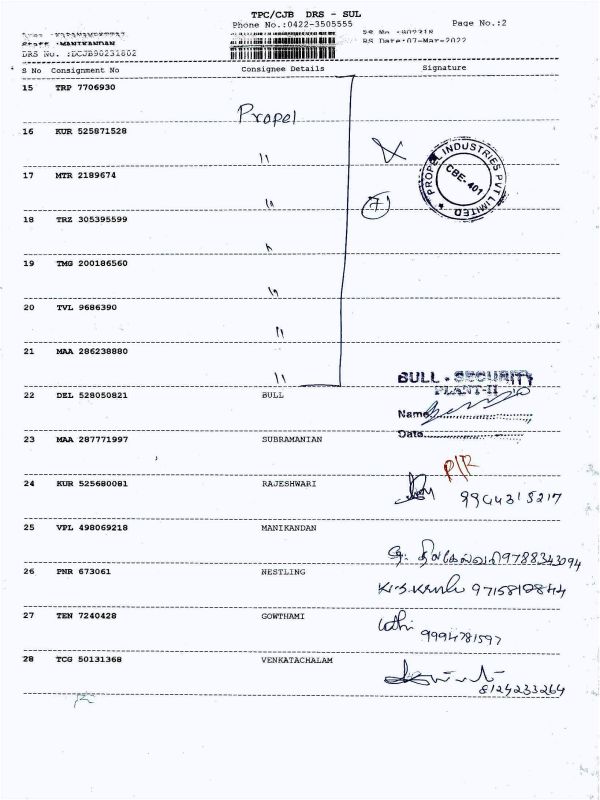 TPC/CJB DRS - SUL
Phone No.:0422-3505555 Page No.:2
Staff :MANIKANDAN RS Date:07-Mar-2022
DRS No. :ECJB90231802
S No Consignment No Consignee Details Signature
15 TRP 7706930
Propel
16 KUR 525871528
"
17 MTR 2189674
"
18 TRZ 305395599
"
19 TMG 200186560
"
20 TVL 9686390
"
21 MAA 286238880
"
7
PROPEL INDUSTRIES PVT LIMITED
CBE-401
BULL . SECURITY
PLANT-II
22 DEL 528050821 BULL
Name
Date
23 MAA 287771997 SUBRAMANIAN
P/R
24 KUR 525680081 RAJESHWARI
9944315217
25 VPL 498069218 MANIKANDAN
9788343094
26 PNR 673061 NESTLING
9715812844
27 TEN 7240428 GOWTHAMI
9994781597
28 TCG 50131368 VENKATACHALAM
8124233264